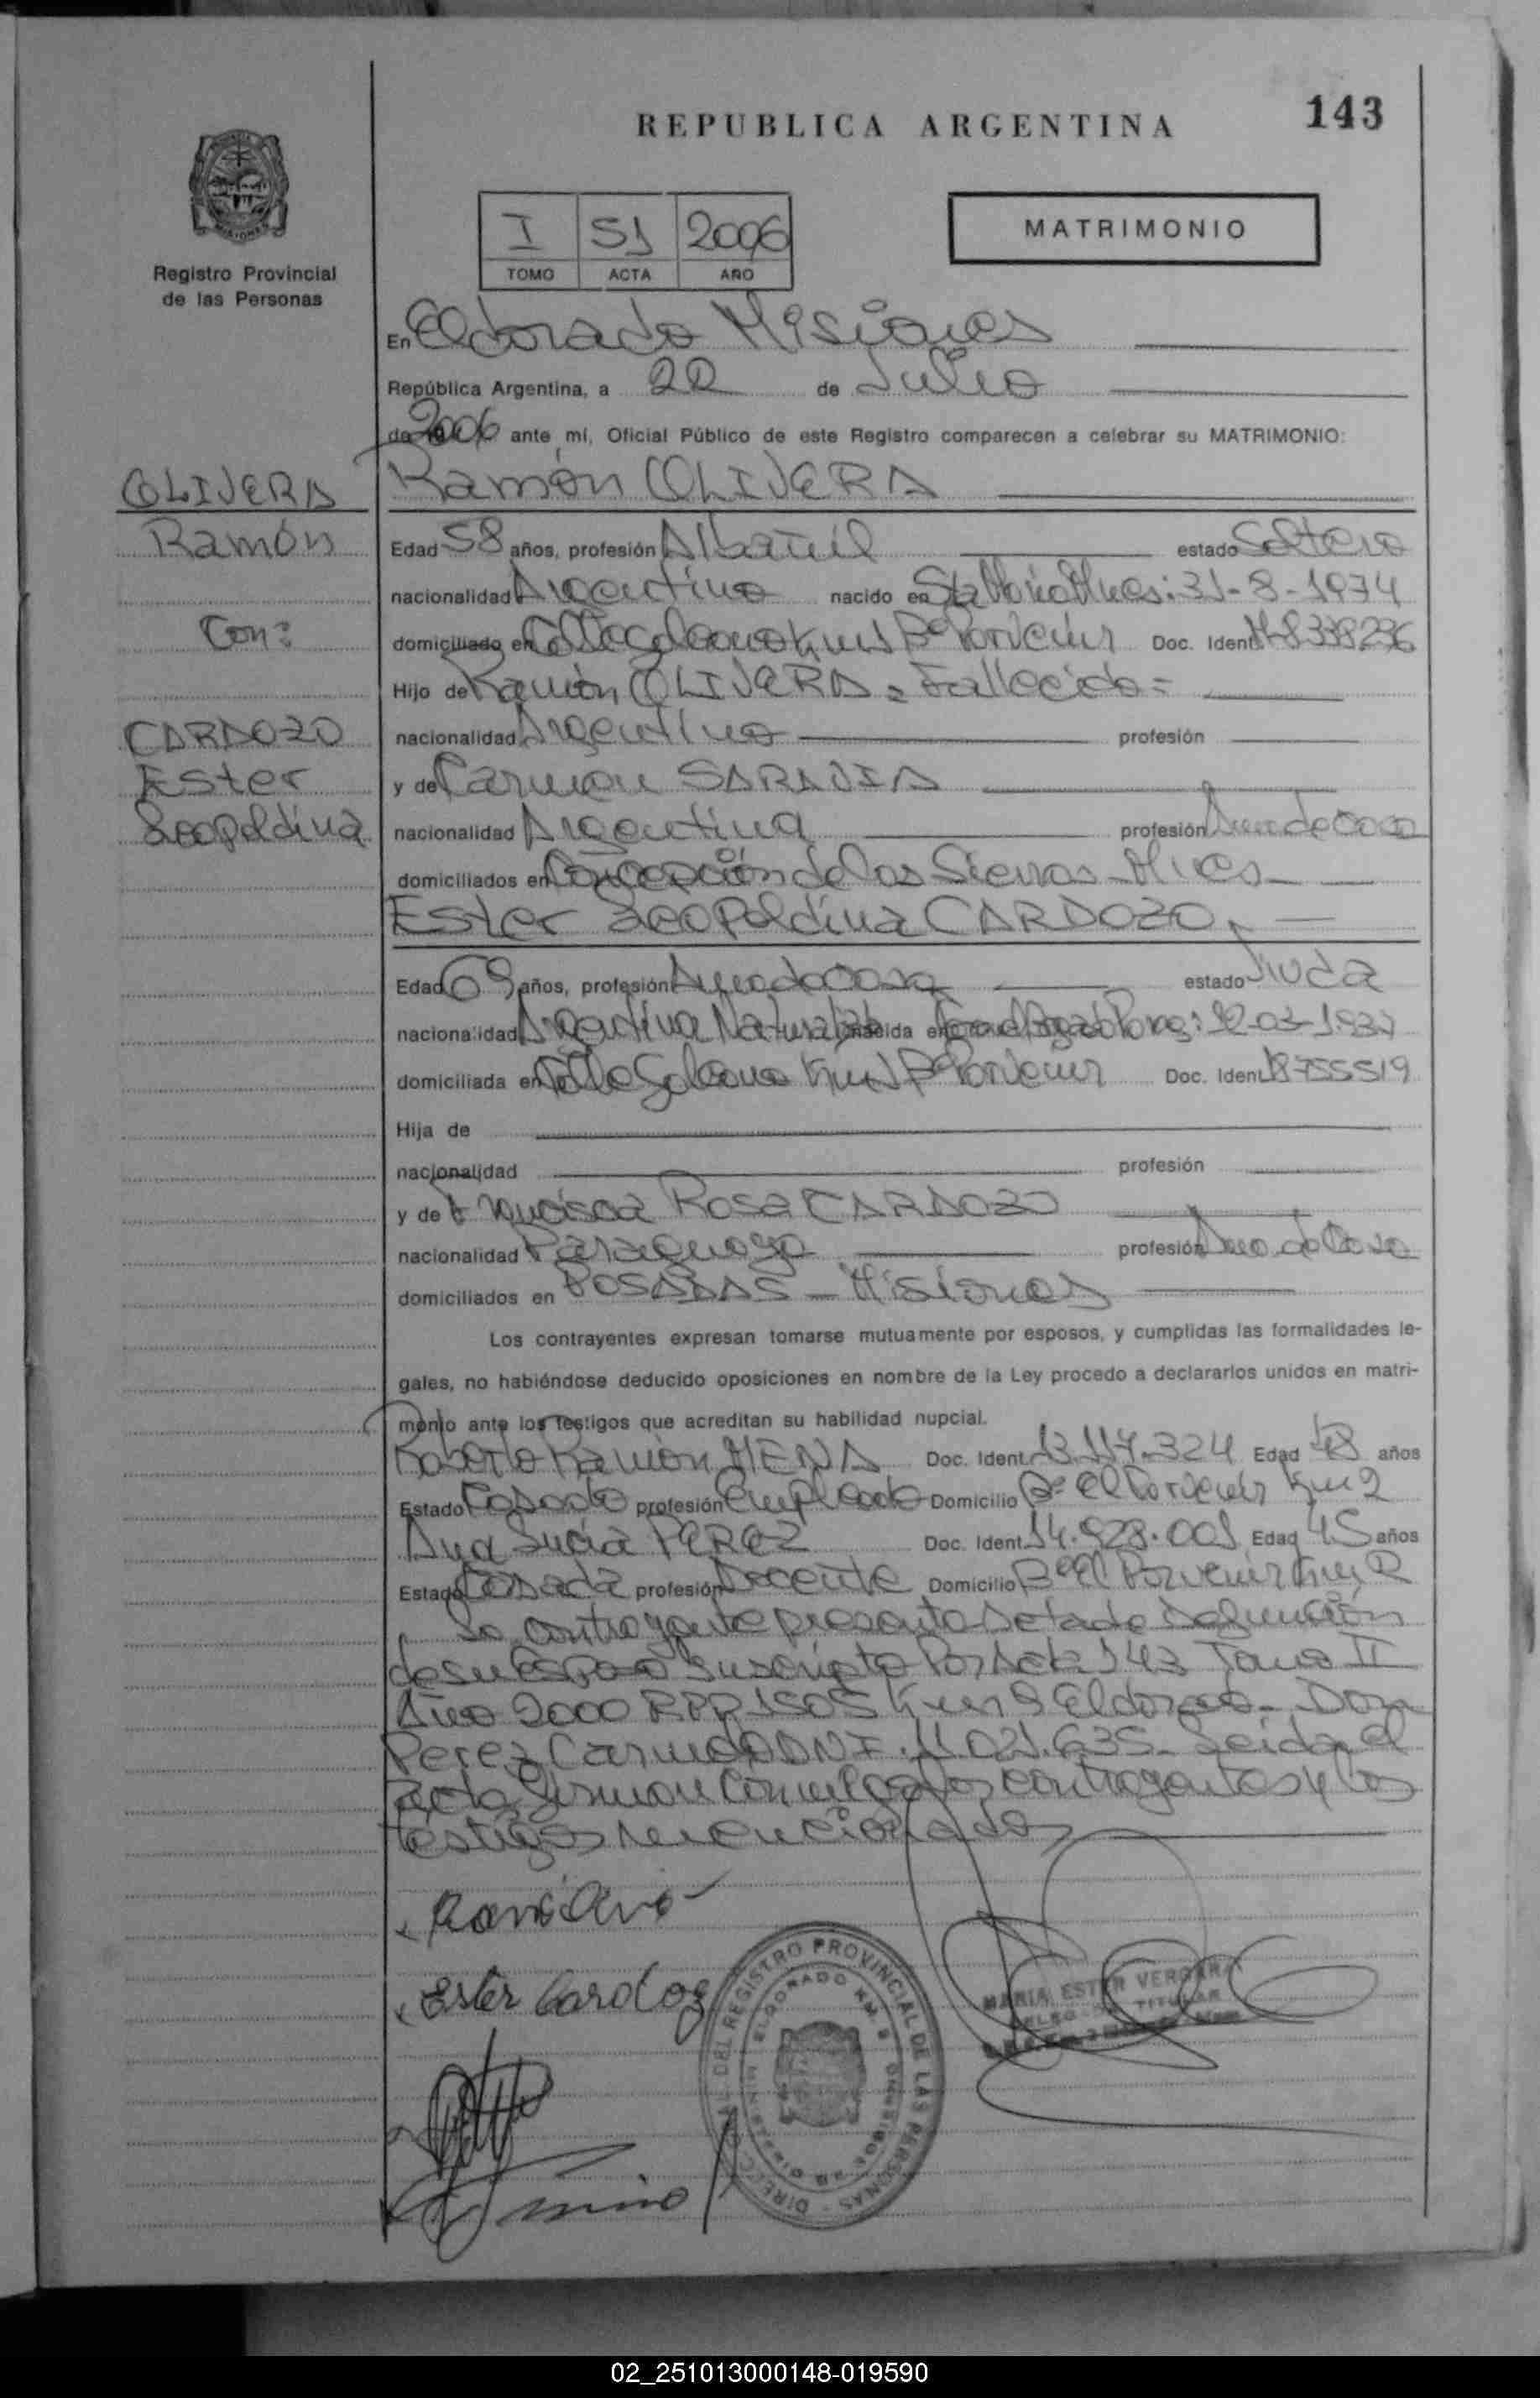 REPUBLICA ARGENTINA
143
I 51 2006
TOMO ACTA AÑO
MATRIMONIO
Registro Provincial
de las Personas
En Eldorado Misiones
República Argentina, a 20 de Julio
de 2006 ante mí, Oficial Público de este Registro comparecen a celebrar su MATRIMONIO:
OLIVERA
Ramón
Con:
CARDOZO
Ester
Leopoldina
Ramón OLIVERA
Edad 58 años, profesión Albañil estado Soltero
nacionalidad Argentino nacido en Sta María Mnes: 31-8-1974
domiciliado en Calle Bº Porvenir Doc. Ident. M8338236
Hijo de Ramón OLIVERA = Fallecido =
nacionalidad Argentino profesión
y de Carmen SARAVIA
nacionalidad Argentina profesión Ama de Casa
domiciliados en Concepción de las Sierras - Mnes -
Ester Leopoldina CARDOZO
Edad 69 años, profesión Ama de Casa estado Viuda
nacionalidad Argentina nacida en 12-03-1937
domiciliada en Calle Bº Porvenir Doc. Ident. 18755519
Hija de
nacionalidad profesión
y de Francisca Rosa CARDOZO
nacionalidad Paraguaya profesión Ama de Casa
domiciliados en POSADAS - Misiones
Los contrayentes expresan tomarse mutuamente por esposos, y cumplidas las formalidades le-
gales, no habiéndose deducido oposiciones en nombre de la Ley procedo a declararlos unidos en matri-
monio ante los testigos que acreditan su habilidad nupcial.
Roberto Ramón MENA Doc. Ident. 13.117.324 Edad 48 años
Estado Casado profesión Empleado Domicilio Bº El Porvenir Km 2
Ana Lucía PEREZ Doc. Ident. 14.928.001 Edad 45 años
Estado Casada profesión Docente Domicilio Bº El Porvenir Km 2
La contrayente presenta Acta de Defunción
de su Esposo Inscripta Por Acta 143 Tomo II
Año 2000 Km 9 Eldorado -
Perez DNI. 11.021.635 - Leída el
acta firman conmigo los contrayentes y los
testigos mencionados
Ester Cardozo
DIRECCION GRAL. DEL REGISTRO PROVINCIAL DE LAS PERSONAS
ELDORADO KM. 2
MARIA ESTER VERGARA
TITULAR
02_251013000148-019590